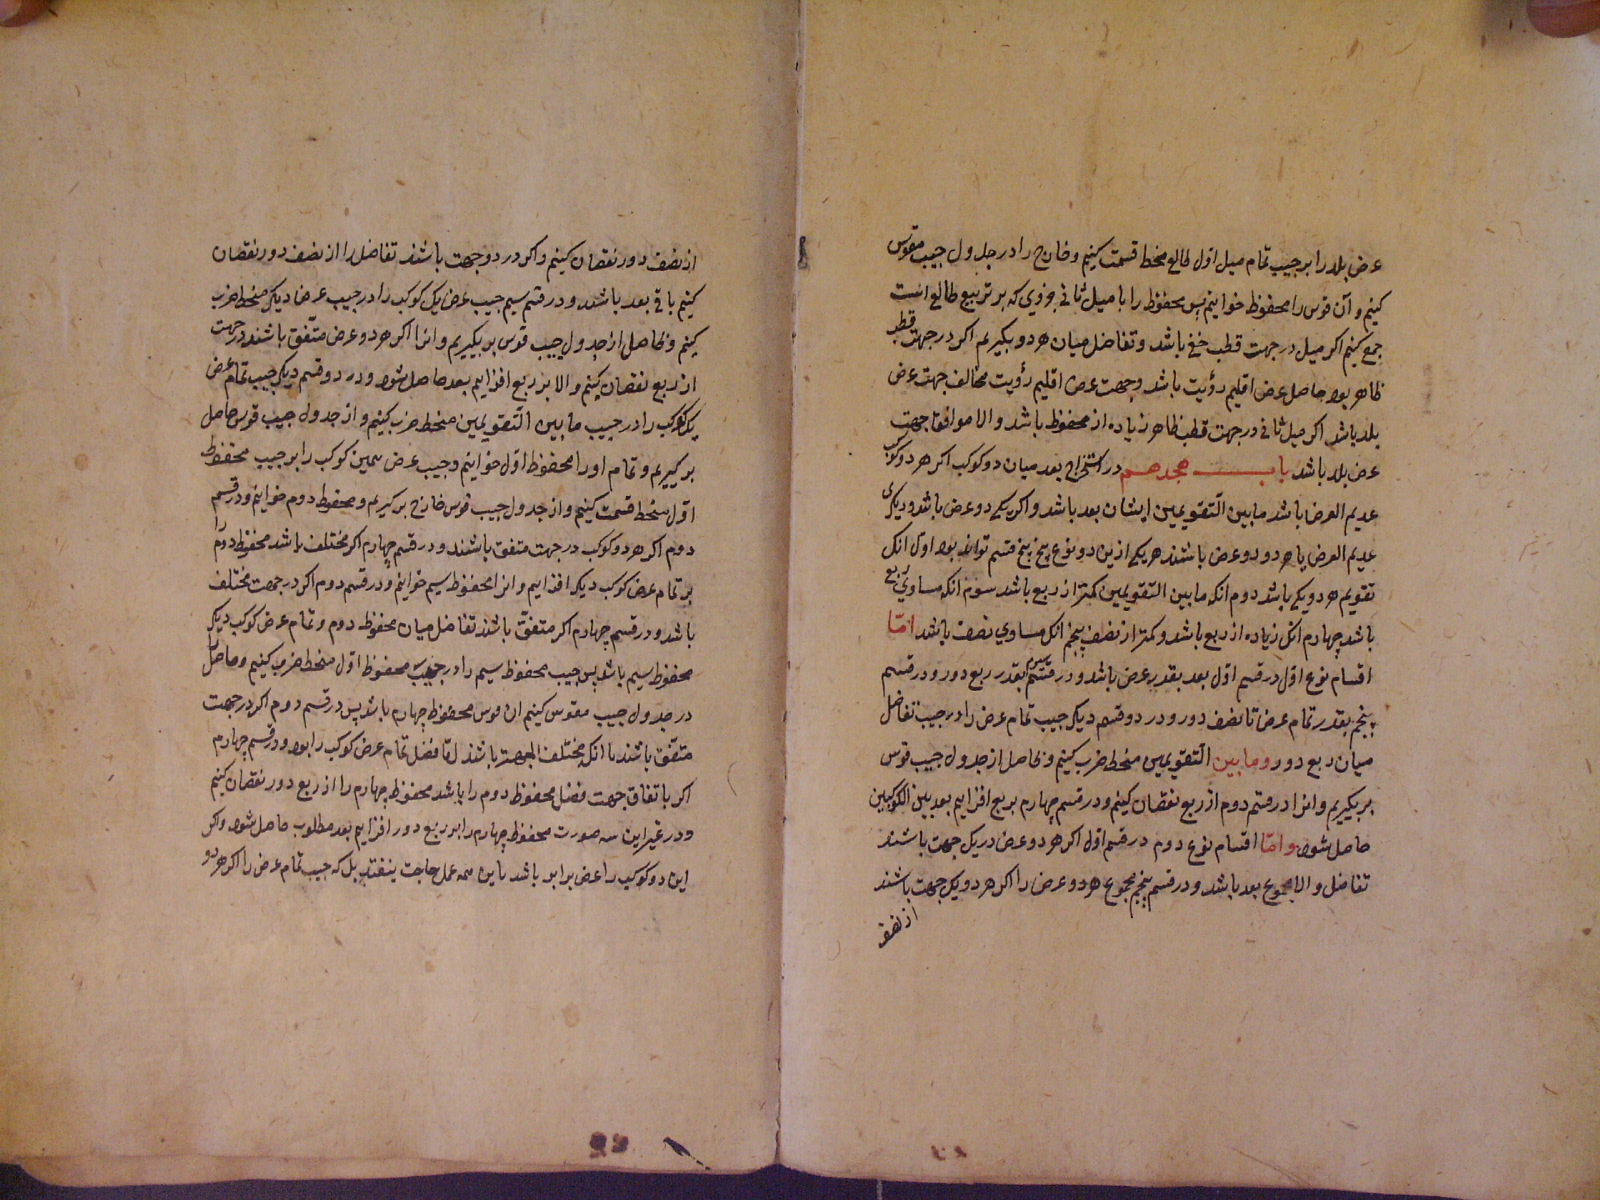 عرض بلد را بر جیب تمام میل اول طالع منحط قسمت کنیم و خارج را در جدول جیب مقوس
کنیم و آن قوس را محفوظ خوانیم پس محفوظ را با میل ثانی جزوی که بر تربیع طالع است
جمع کنیم اکر میل در جهت قطب خفی باشد و تفاضل میان هر دو بکیریم اکر در جهت قطب
ظاهر بود حاصل عرض اقلیم رؤیت باشد و جهت عرض اقلیم رؤیت مخالف جهت عرض
بلد باشد اکر میل ثانی در جهت قطب ظاهر زیاده از محفوظ باشد والا موافق جهت
عرض بلد باشد باب هجدهم در استخراج بعد میان دو کوکب اکر هر دو کوکب
عدیم العرض باشد ما بین التقویمین ایشان بعد باشد و اکر یکی ذو عرض باشد و دیکری
عدیم العرض یا هر دو ذو عرض باشند هر یکی ازین دو نوع پنج پنج قسم تواند بود اول انک
تقویم هر دو یکی باشد دوم انکه ما بین التقویمین کمتر از ربع باشد سوم انکه مساوی ربع
باشد چهارم انک زیاده از ربع باشد و کمتر از نصف پنجم انک مساوی نصف باشد امّا
اقسام نوع اول در قسم اول بعد بقدر عرض باشد و در قسم سیم بقدر ربع دور و در قسم
پنجم بقدر تمام عرض تا نصف دور و در دو قسم دیکر جیب تمام عرض را در جیب تفاضل
میان ربع دور و ما بین التقویمین منحط ضرب کنیم و حاصل از جدول جیب قوس
بر کیریم و انرا در قسم دوم از ربع نقصان کنیم و در قسم چهارم بر ربع افزاییم بعد بین الکوکبین
حاصل شود و امّا اقسام نوع دوم در قسم اول اکر هر دو عرض در یک جهت باشند
تفاضل والا مجموع بعد باشد و در قسم پنجم مجموع هر دو عرض را اکر هر دو یک جهت باشند
از نصف
از نصف دور نقصان کنیم و اکر در دو جهت باشند تفاضل را از نصف دور نقصان
کنیم باقی بعد باشد و در قسم سیم جیب عرض یک کوکب را در جیب عرض دیکر منحط ضرب
کنیم و حاصل از جدول جیب قوس بر کیریم و انرا اکر هر دو عرض متّفق باشند در جهت
از ربع نقصان کنیم والا بر ربع افزاییم بعد حاصل شود و در دو قسم دیکر جیب تمام عرض
یک کوکب را در جیب ما بین التقویمین منحط ضرب کنیم و از جدول جیب قوس حاصل
بر کیریم و تمام او را محفوظ اول خوانیم و جیب عرض همین کوکب را بر جیب محفوظ
اول منحط قسمت کنیم و از جدول جیب قوس خارج بر کیریم و محفوظ دوم خوانیم و در قسم
دوم اکر هر دو کوکب در جهت متفق باشند و در قسم چهارم اکر مختلف باشد محفوظ دوم را
بر تمام عرض کوکب دیکر افزاییم و انرا محفوظ سیم خوانیم و در قسم دوم اکر در جهت مختلف
باشد و در قسم چهارم اکر متفق باشند تفاضل میان محفوظ دوم و تمام عرض کوکب دیکر
محفوظ سیم باشد پس جیب محفوظ سیم را در جیب محفوظ اول منحط ضرب کنیم و حاصل را
در جدول جیب مقوس کنیم ان قوس محفوظ چهارم باشد پس در قسم دوم اکر در جهت
متفق باشند یا انکه مختلف الجهت باشند امّا فضل تمام عرض کوکب را بود و در قسم چهارم
اکر با تفاق جهت فضل محفوظ دوم را باشد محفوظ چهارم را از ربع دور نقصان کنیم
و در غیر این سه صورت محفوظ چهارم را بر ربع دور افزاییم بعد مطلوب حاصل شود و اکر
این دو کوکب را عرض برابر باشد باین همه عمل حاجت نیفتد بلکه جیب تمام عرض را اکر هر دو